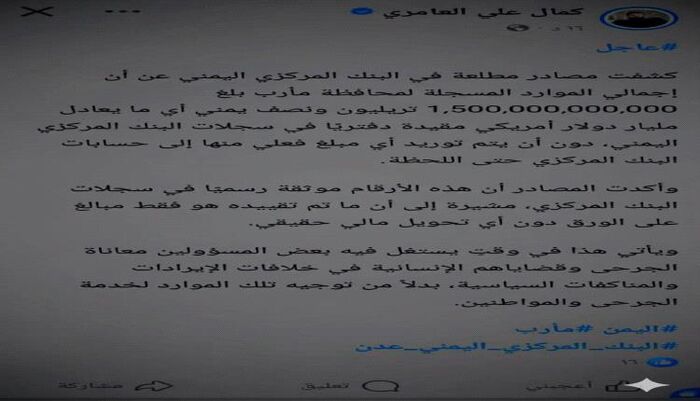 كمال علي العامري
١٦ د ·
#عاجل
كشفت مصادر مطلعة في البنك المركزي اليمني عن أن
إجمالي الموارد المسجلة لمحافظة مأرب بلغ
1,500,000,000,000 تريليون ونصف يمني أي ما يعادل
مليار دولار أمريكي مقيدة دفتريًا في سجلات البنك المركزي
اليمني، دون أن يتم توريد أي مبلغ فعلي منها إلى حسابات
البنك المركزي حتى اللحظة.
وأكدت المصادر أن هذه الأرقام موثقة رسميًا في سجلات
البنك المركزي، مشيرة إلى أن ما تم تقييده هو فقط مبالغ
على الورق دون أي تحويل مالي حقيقي.
ويأتي هذا في وقتٍ يستغل فيه بعض المسؤولين معاناة
الجرحى وقضاياهم الإنسانية في خلافات الإيرادات
والمناكفات السياسية، بدلاً من توجيه تلك الموارد لخدمة
الجرحى والمواطنين.
#اليمن #مأرب
#البنك_المركزي_اليمني_عدن
١٦
أعجبني تعليق مشاركة